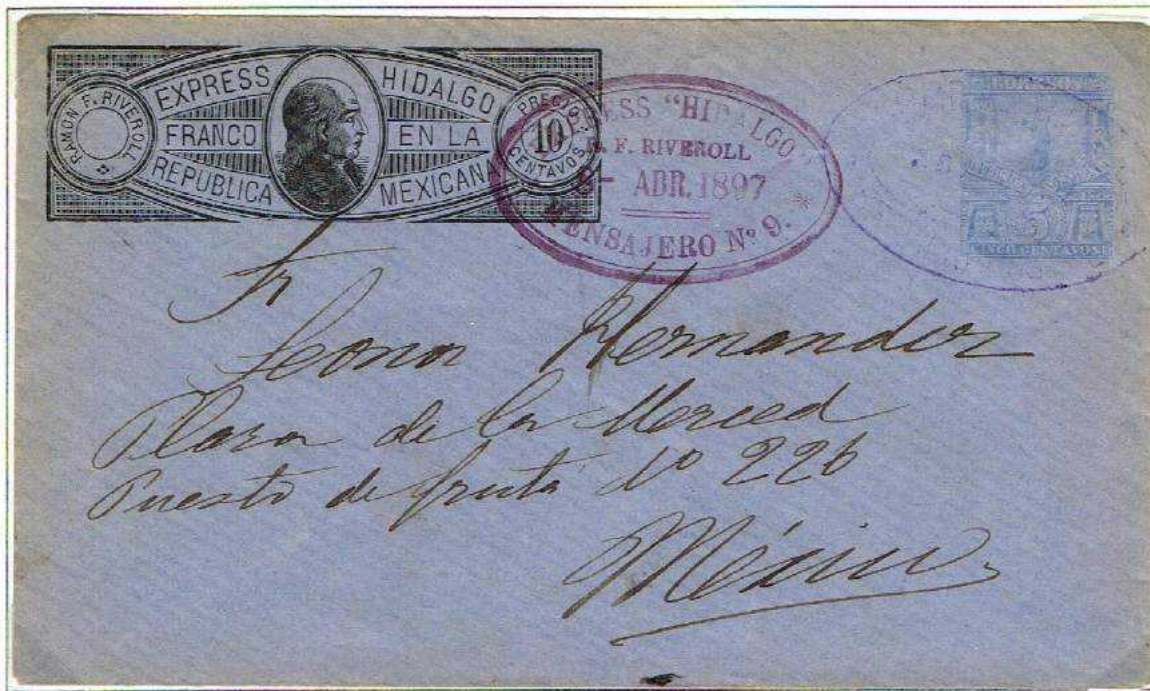 RAMON F. RIVEROLL
EXPRESS HIDALGO
FRANCO EN LA
REPUBLICA MEXICANA
PRECIO 10 CENTAVOS
EXPRESS "HIDALGO"
F. RIVEROLL
ABR. 1897
MENSAJERO Nº 9.
5
CINCO CENTAVOS
Sr
Leonor Hernandez
Plaza de la Merced
Puesto de fruta Nº 226
México